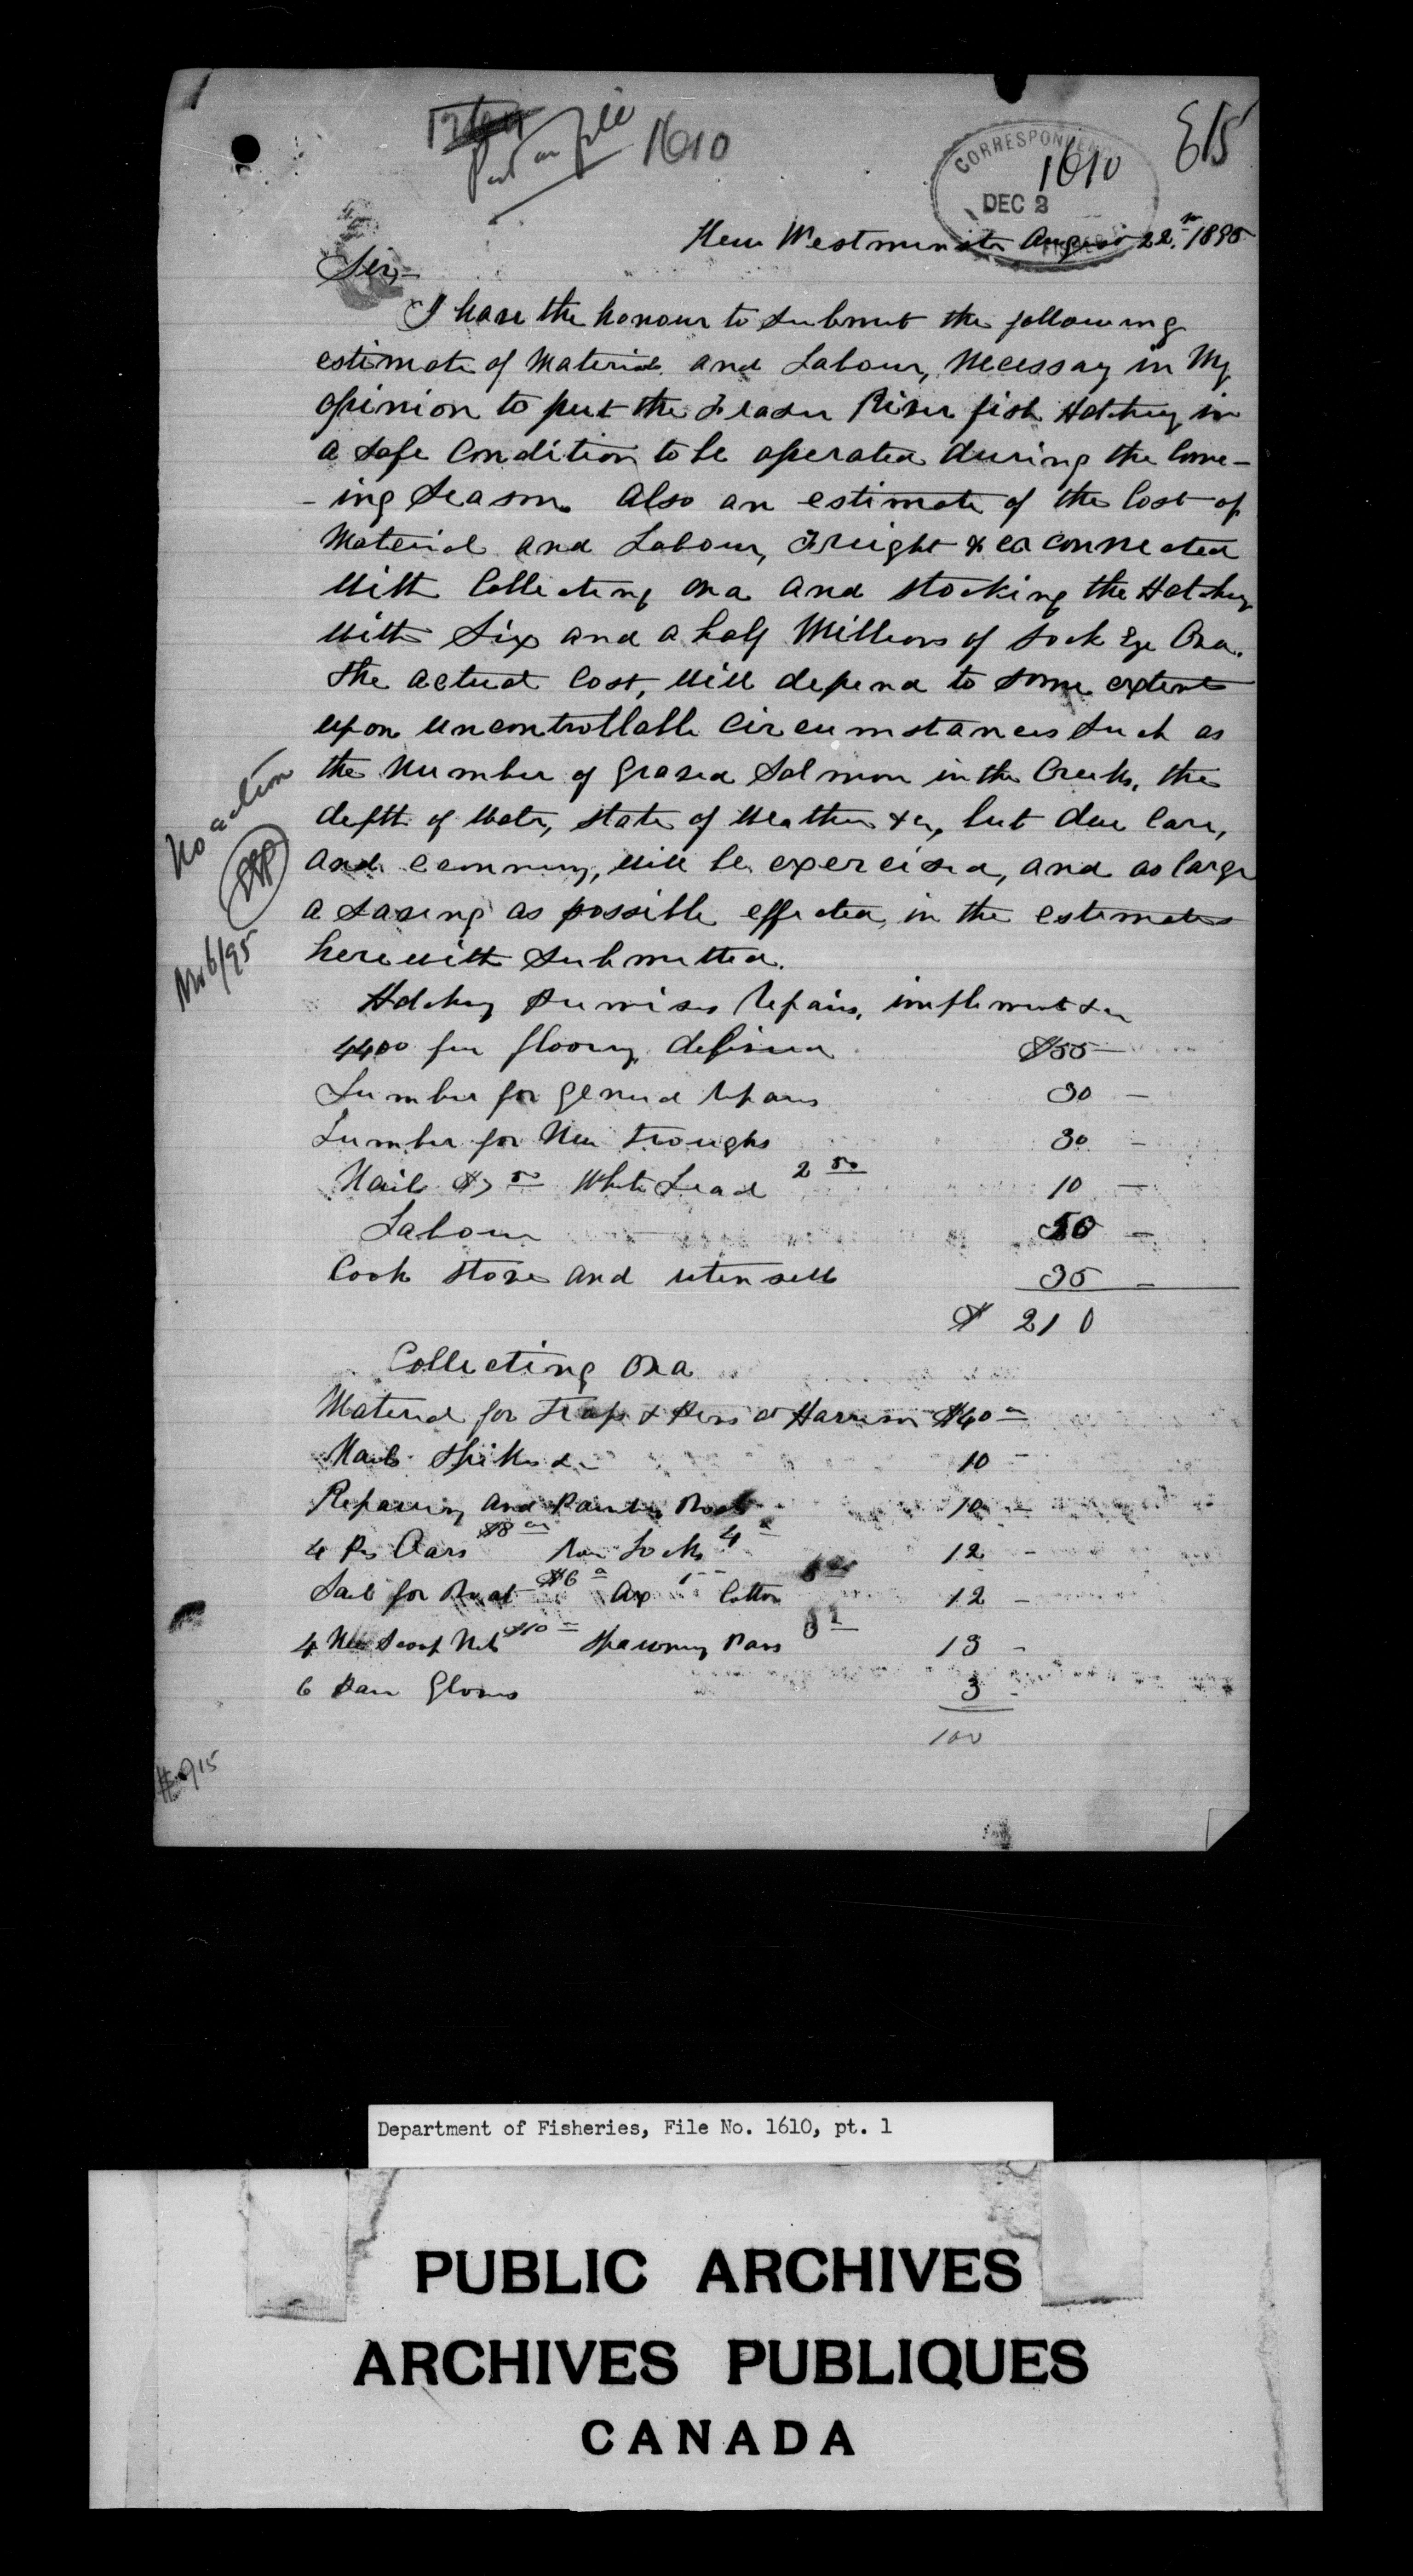 Put on file
1610
E15
CORRESPONDENCE
1610
DEC 2
New Westminster August 22nd 1895
Sir,-
I have the honour to submit the following
estimate of Material and Labour, Necessary in My
opinion to put the Fraser River fish Hatchery in
a safe Condition to be operated during the Come-
-ing Season. Also an estimate of the Cost of
Material and Labour, Freight &ca connected
with Collecting Ova and stocking the Hatchery
with Six and a half Millions of Sock Eye Ova.
The actual Cost, will depend to some extent
upon uncontrollable Circumstances Such as
the Number of Gravid Salmon in the Creeks, the
depth of Water, state of Weather &c, but due Care,
and economy, will be exercised, and as large
a saving as possible effected, in the estimates
herewith Submitted.
No action
Nov 6/95
Hatchery Premises Repairs, implements &c
4400 feet flooring delivered $55 -
Lumber for General repairs 30 -
Lumber for New troughs 30 -
Nails $7 50 White Lead 2 50 10 -
Labour 50 -
Cook stove and utensells 35 -
$ 210
Collecting Ova
Material for Trap & Pens at Harrison $40 -
Nails Spikes &c 10 -
Repairing and Painting Boats 10 -
4 Prs Oars $8 Row Locks 4 12 -
Sail for Boat $6 Axe 1 Cotton 5 12 -
4 New Scoop Nets $10 Spawning Pans 3 13 -
6 Pair Gloves 3 -
100
Department of Fisheries, File No. 1610, pt. 1
PUBLIC ARCHIVES
ARCHIVES PUBLIQUES
CANADA